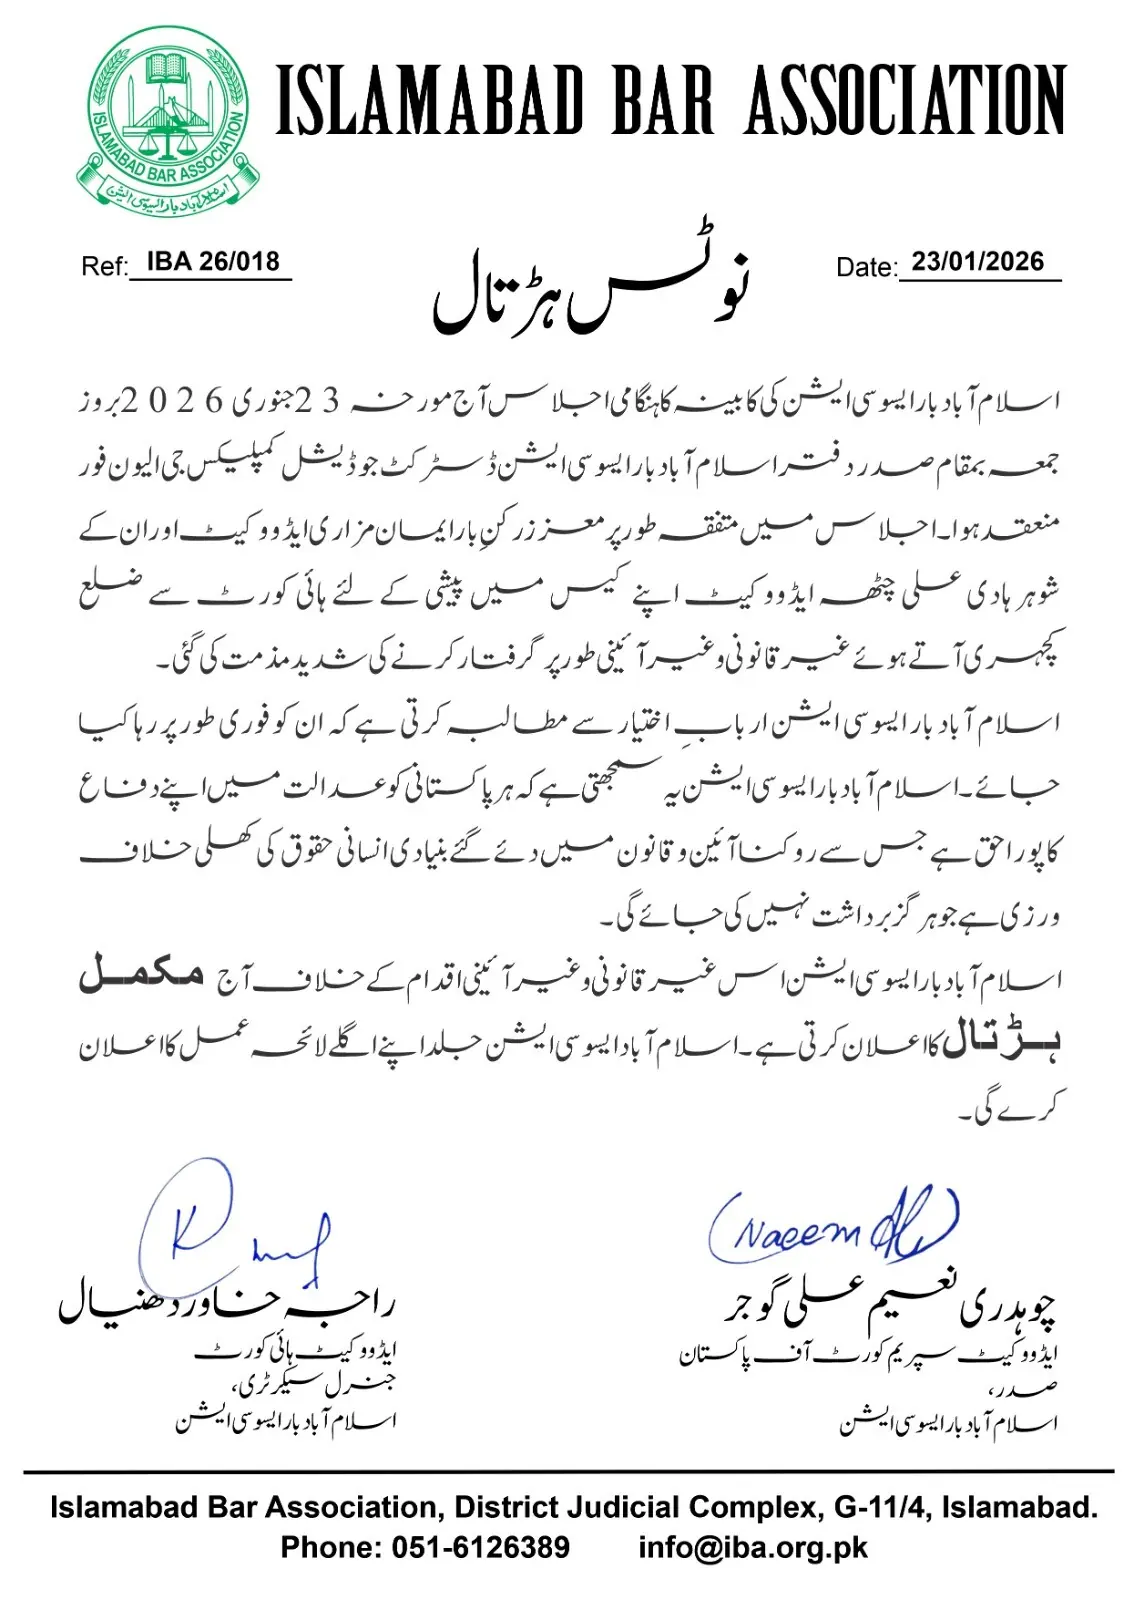 ISLAMABAD BAR ASSOCIATION
ISLAMABAD BAR ASSOCIATION
اسلام آباد بار ایسوسی ایشن
Ref: IBA 26/018
Date: 23/01/2026
نوٹس ہڑتال
اسلام آباد بار ایسوسی ایشن کی کابینہ کا ہنگامی اجلاس آج مورخہ 23 جنوری 2026 بروز
جمعہ بمقام صدر دفتر اسلام آباد بار ایسوسی ایشن ڈسٹرکٹ جوڈیشل کمپلیکس جی الیون فور
منعقد ہوا۔ اجلاس میں متفقہ طور پر معزز رکنِ بار ایمان مزاری ایڈووکیٹ اور ان کے
شوہر ہادی علی چٹھہ ایڈووکیٹ اپنے کیس میں پیشی کے لئے ہائی کورٹ سے ضلع
کچہری آتے ہوئے غیر قانونی و غیر آئینی طور پر گرفتار کرنے کی شدید مذمت کی گئی۔
اسلام آباد بار ایسوسی ایشن اربابِ اختیار سے مطالبہ کرتی ہے کہ ان کو فوری طور پر رہا کیا
جائے۔ اسلام آباد بار ایسوسی ایشن یہ سمجھتی ہے کہ ہر پاکستانی کو عدالت میں اپنے دفاع
کا پورا حق ہے جس سے روکنا آئین و قانون میں دئے گئے بنیادی انسانی حقوق کی کھلی خلاف
ورزی ہے جو ہر گز برداشت نہیں کی جائے گی۔
اسلام آباد بار ایسوسی ایشن اس غیر قانونی و غیر آئینی اقدام کے خلاف آج مکمل
ہڑتال کا اعلان کرتی ہے۔ اسلام آباد ایسوسی ایشن جلد اپنے اگلے لائحہ عمل کا اعلان
کرے گی۔
(Naeem Ali)
چوہدری نعیم علی گوجر
ایڈووکیٹ سپریم کورٹ آف پاکستان
صدر،
اسلام آباد بار ایسوسی ایشن
راجہ خاور دھنیال
ایڈووکیٹ ہائی کورٹ
جنرل سیکرٹری،
اسلام آباد بار ایسوسی ایشن
Islamabad Bar Association, District Judicial Complex, G-11/4, Islamabad.
Phone: 051-6126389 info@iba.org.pk